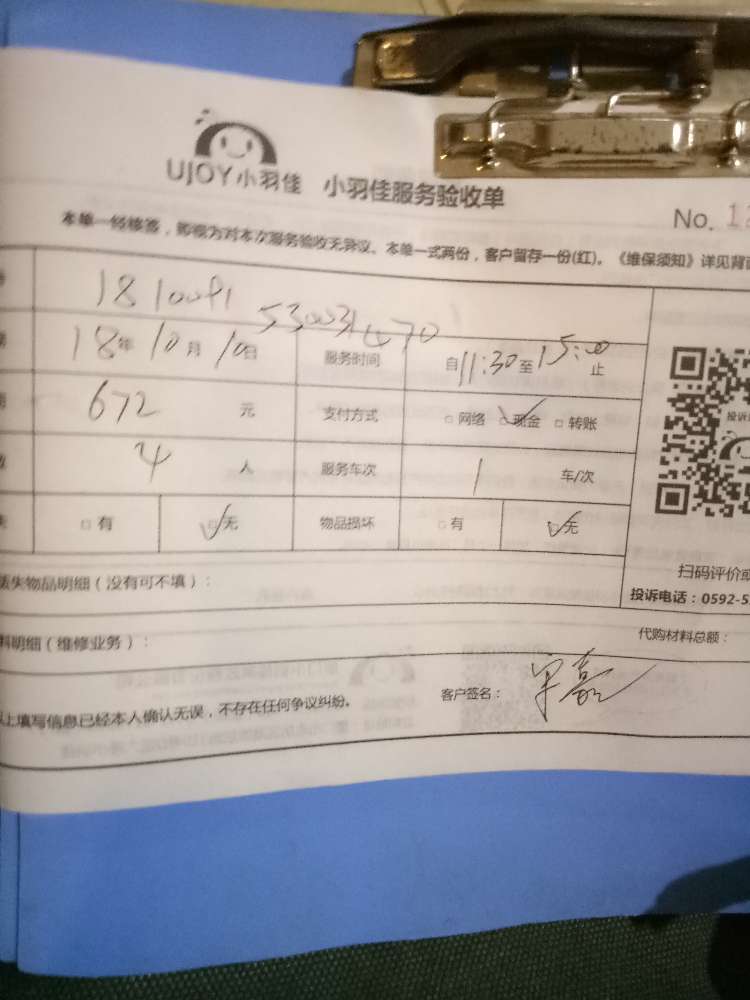 UJOY小羽佳 小羽佳服务验收单
No. 1
本单一经核签，即视为对本次服务验收无异议。本单一式两份，客户留存一份(红)。《维保须知》详见背
18
18年10月10日 服务时间 自11:30至15:00止
672 元 支付方式 □网络 □现金 □转账
4 人 服务车次 1 车/次
□有 □无 物品损坏 □有 □无
投诉
扫码评价或
失物品明细（没有可不填）：
投诉电话：0592-5
料明细（维修业务）：
代购材料总额：
上填写信息已经本人确认无误，不存在任何争议纠纷。
客户签名：